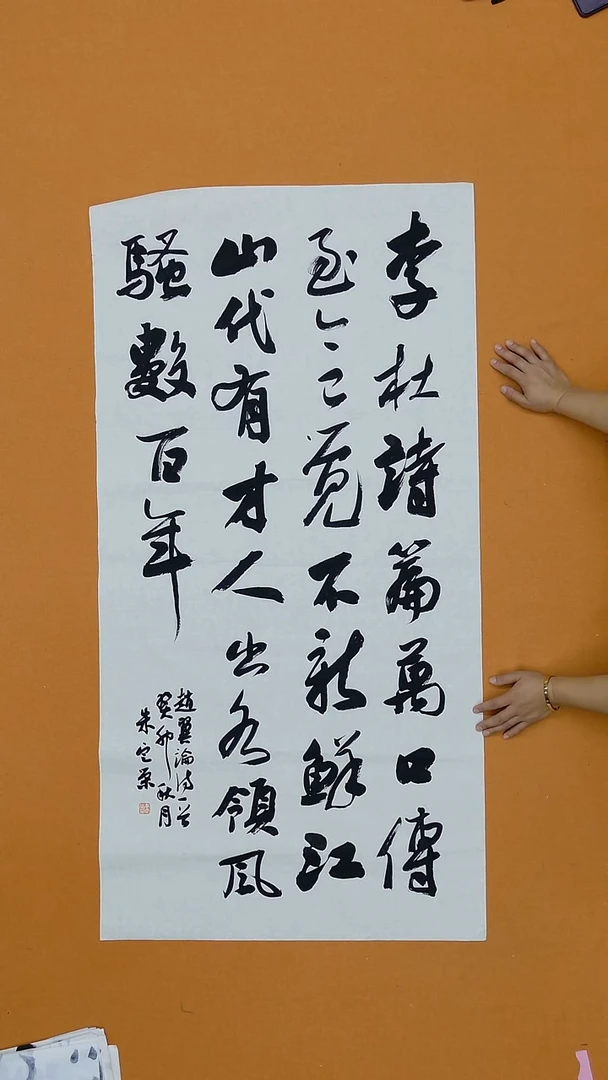 李杜詩篇萬口傳
至今已覺不新鮮江
山代有才人出各領風
騷數百年
趙翼論詩一首
癸卯秋月
朱定榮